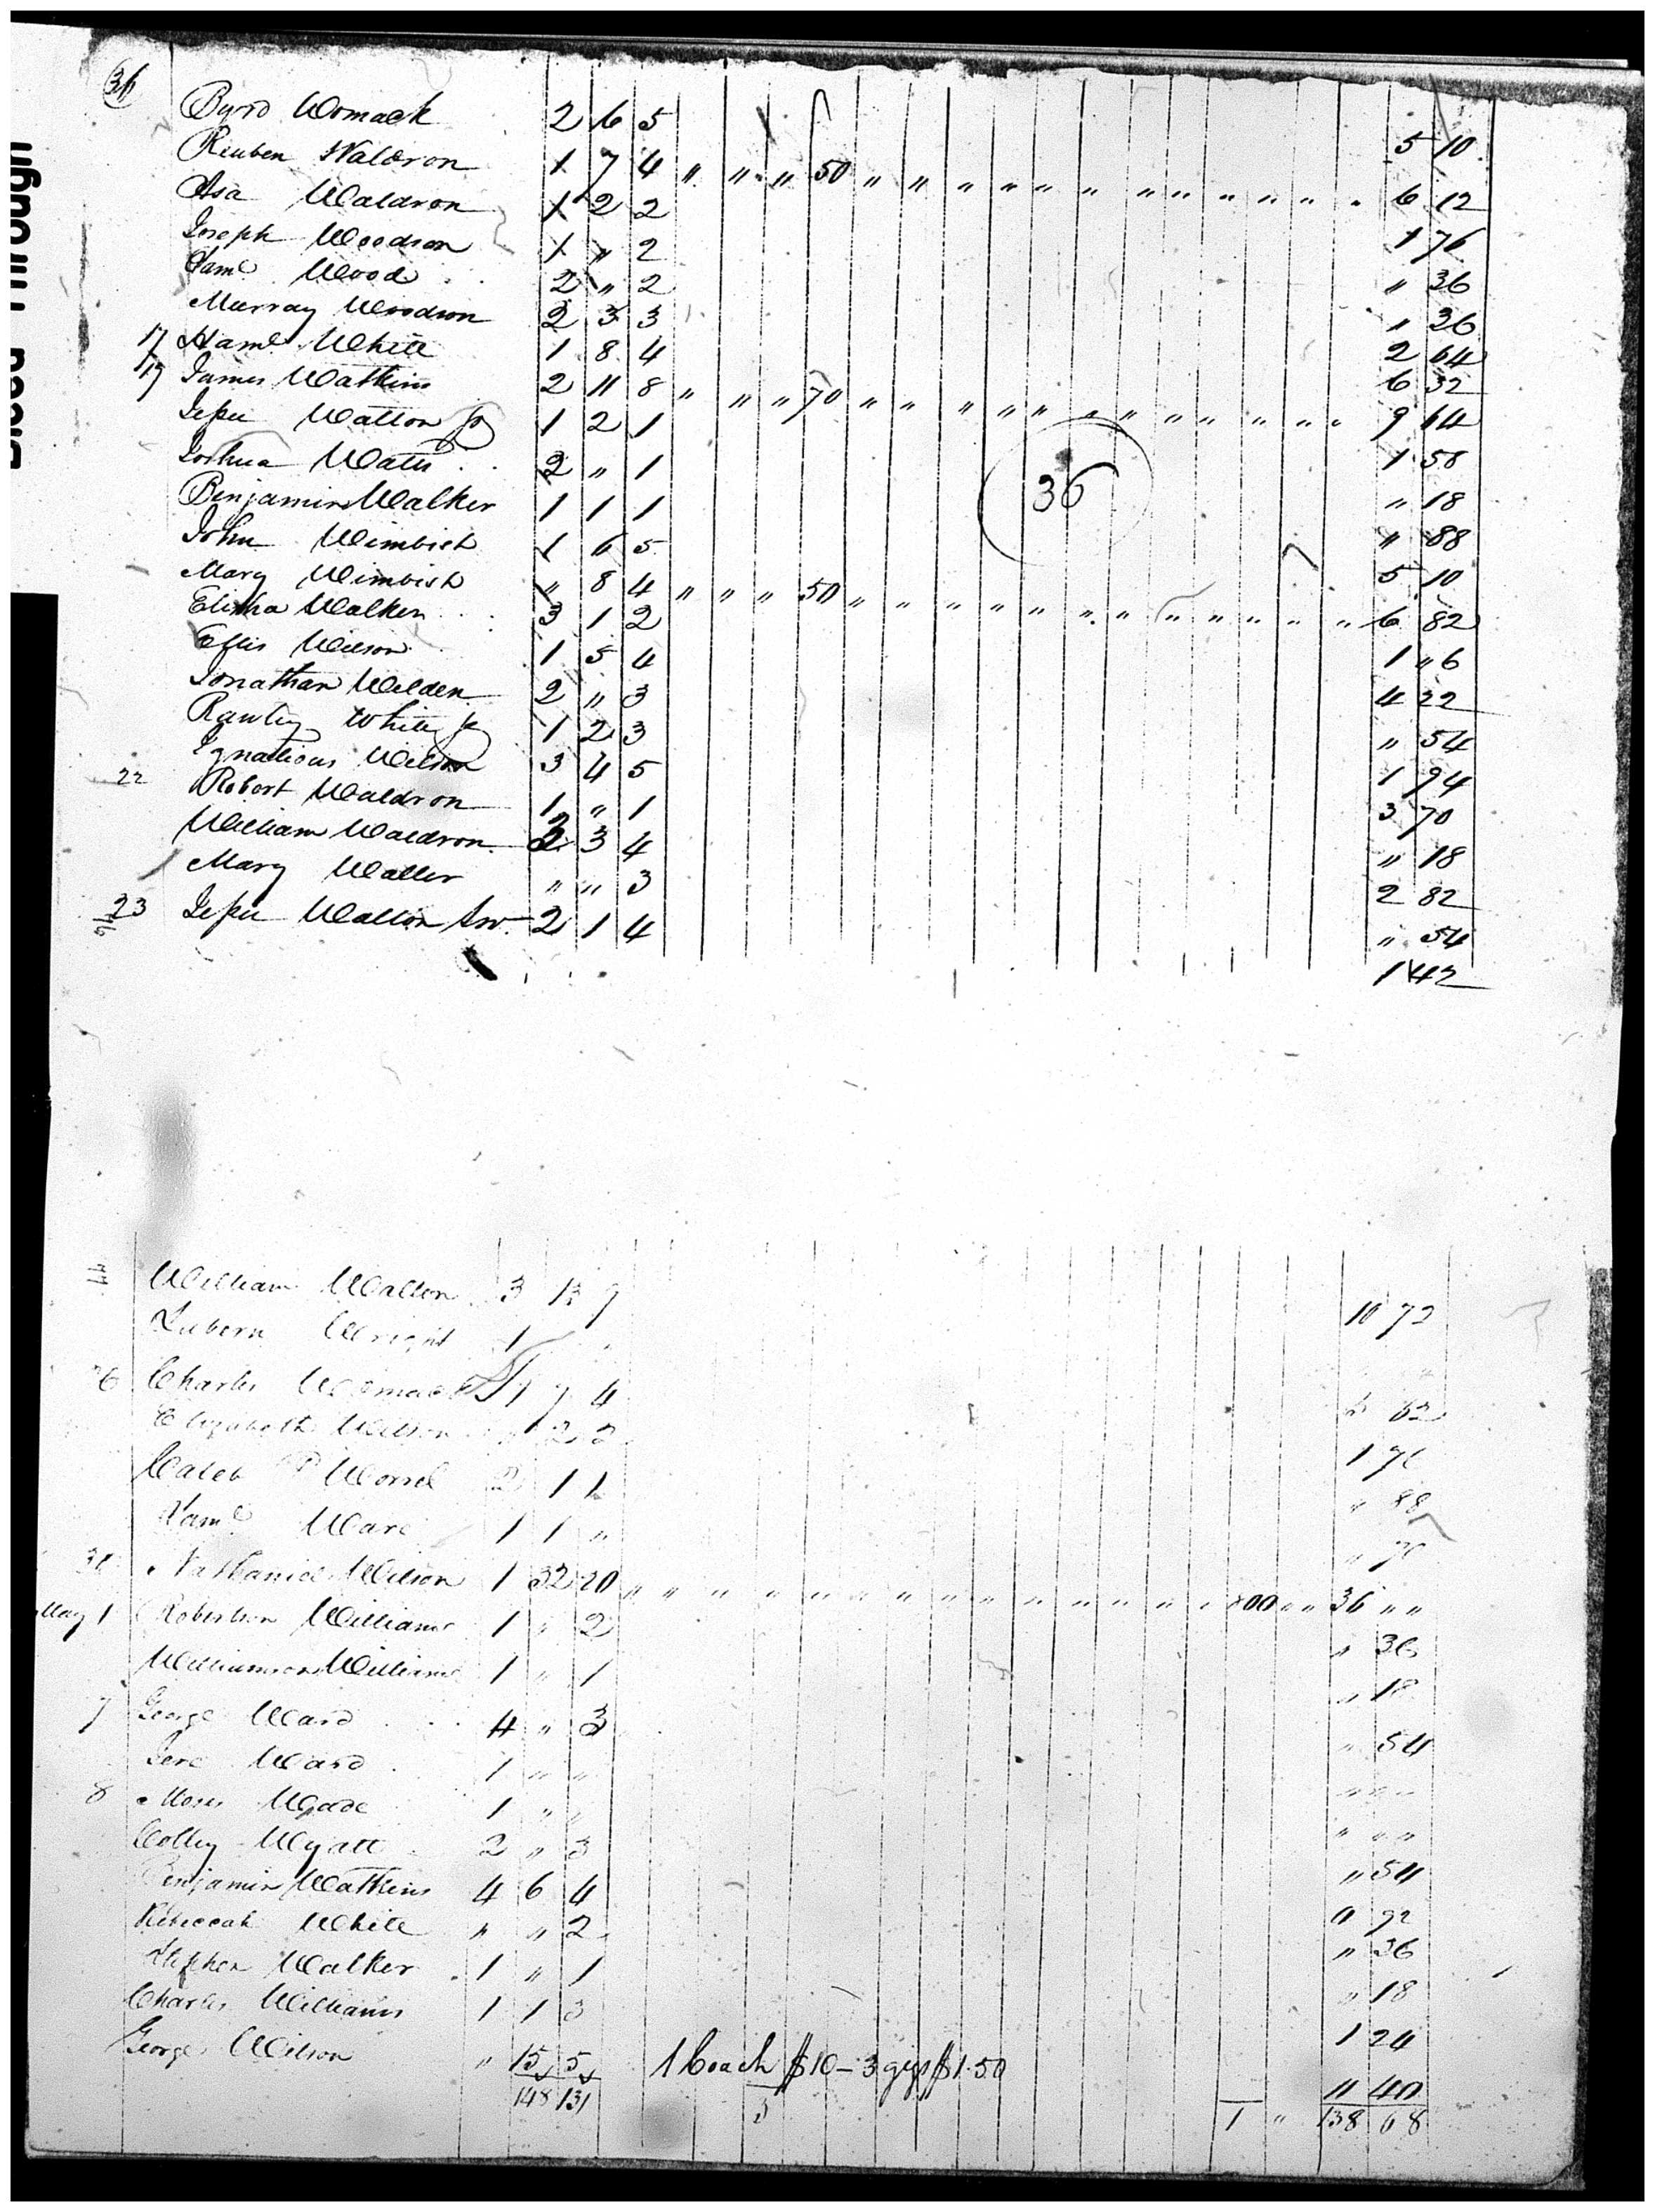 36
Byrd Womack 2 6 5 5 10
Reuben Waldron 1 7 4 " " " 50 " " " " " " " " " " " " 6 12
Asa Waldron 1 2 2 1 76
Joseph Woodson 1 " 2 " 36
Saml Wood 2 " 2 " 36
Murray Woodson 2 3 3 2 64
17 Haml White 1 8 4 6 32
19 James Watkins 2 11 8 " " " 70 " " " " " " " " " " " " 9 64
Jesse Walton Jr 1 2 1 1 58
Joshua Watts 2 " 1 " 18
36
Benjamin Walker 1 1 1 " 88
John Wimbish 1 6 5 5 10
Mary Wimbish " 8 4 " " " 50 " " " " " " " " " " " " 6 82
Elisha Walker 3 1 2 1 " 6
Ellis Wilson 1 5 4 4 22
Jonathan Welden 2 " 3 " 54
Rawley White Jr 1 2 3 1 94
Ignatious Wilson 3 4 5 3 70
22 Robert Waldron 1 " 1 " 18
William Waldron 2 3 4 2 82
Mary Waller " " 3 " 54
23 Jesse Walton Snr 2 1 4 1 42
William Walton 3 13 7 10 72
Wright 1 "
26 Charles Womack 1 7 4 62
Elizabeth Wilson " 2 2 1 76
Caleb P Worrel 2 1 1 " 88
Saml Ware 1 1 " " 70
Nathaniel Wilson 1 32 20 " " " " " " " " " " " " 800 " " 36 " "
May 1 Robertson Williams 1 " 2 " 36
Williamson Williams 1 " 1 " 18
7 George Ward 4 " 3 " 54
Jere Ward 1 " " " " "
8 Moses Wade 1 " " " " "
Colley Wyatt 2 " 3 " 54
Benjamin Watkins 4 6 4 4 92
Rebeccah White " " 2 " 36
Stephen Walker 1 " 1 " 18
Charles Williams 1 1 3 1 24
George Wilson " 15 5 1 Coach $10 - 3 gigs $1.50 11 40
148 131 3 1 " 138 68